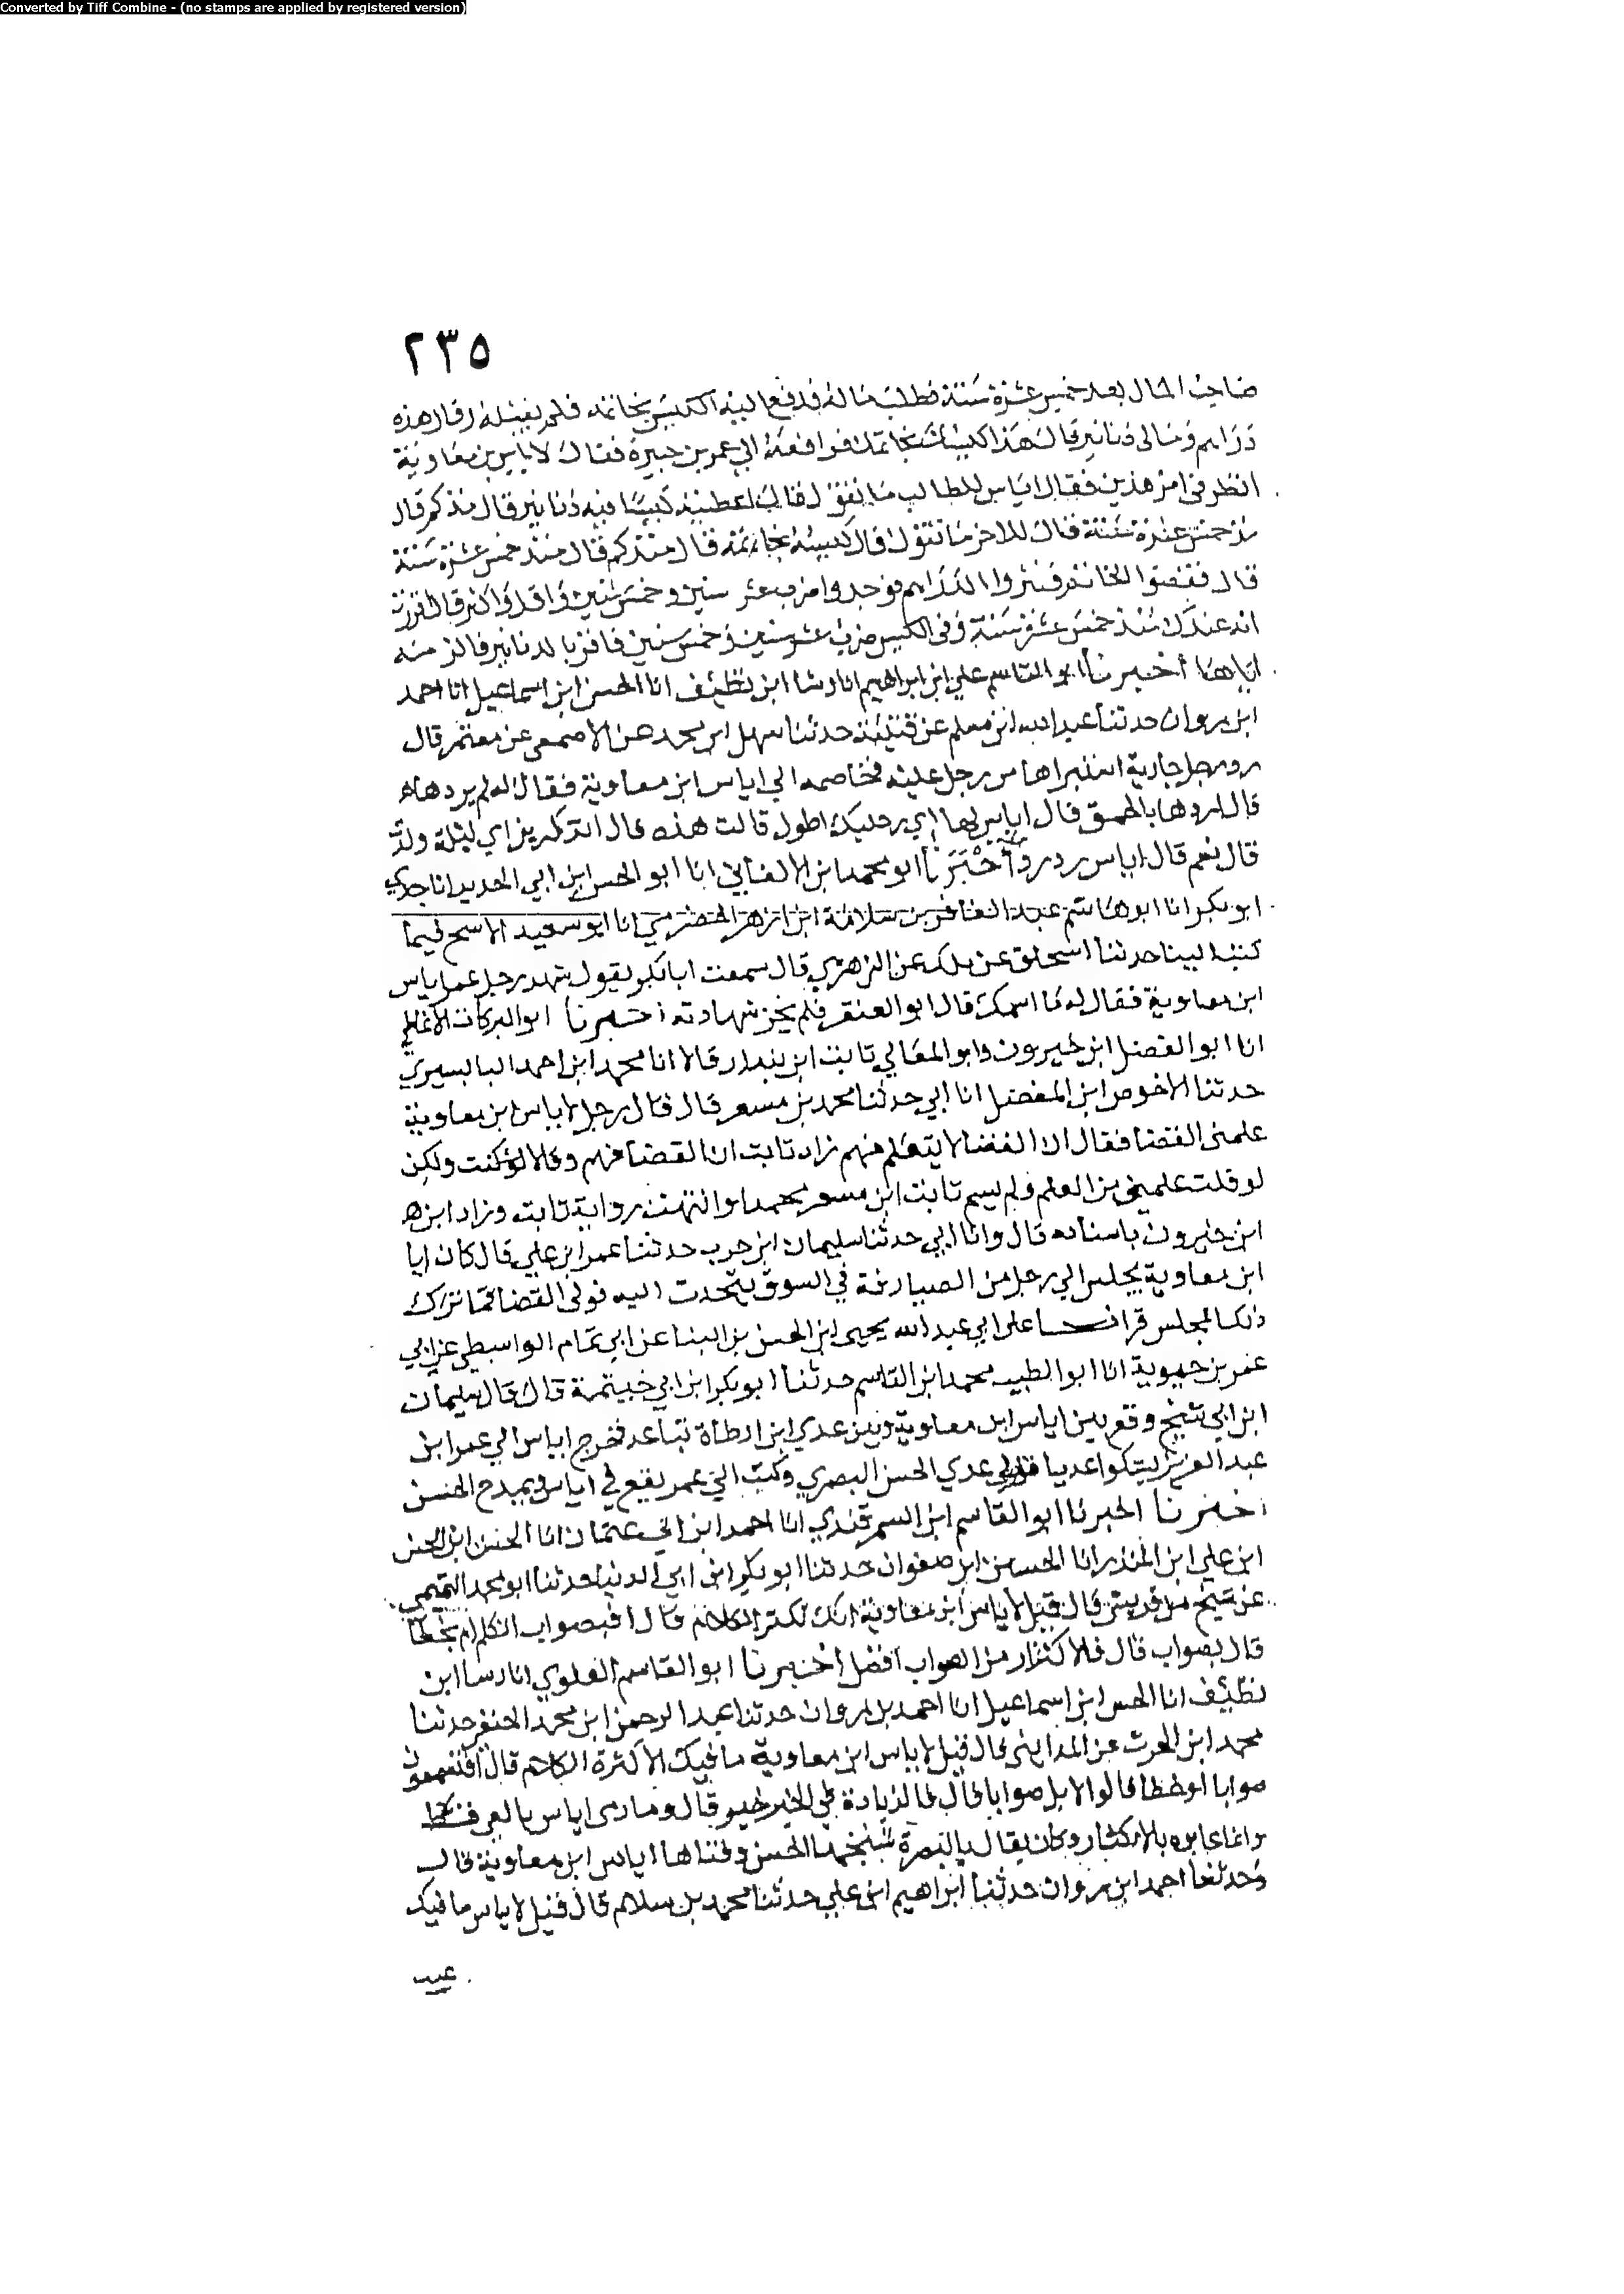 Converted by Tiff Combine - (no stamps are applied by registered version)
٢٣٥
صاحب المال بعد خمس عشرة سنة فطلب ماله فدفع اليه الكيس بخاتمه فلم يقبله وقال هذه
دراهم ومالى دنانير قال هذا كيسك بخاتمك فرافعه الي عمر بن هبيرة فقال لاياس بن معاوية
انظر فى امر هذين فقال اياس للطالب ما تقول قال اعطيته كيسا فيه دنانير قال منذ كم قال
منذ خمس عشرة سنة قال للاخر ما تقول قال كيسه بخاتمه قال منذ كم قال منذ خمس عشرة سنة
قال ففضوا الخاتم فنثروا الدراهم فوجدوا ضرب عشر سنين وخمس سنين واقل واكثر قال اقررت
انه عندك منذ خمس عشرة سنة وفى الكيس ضرب عشر سنين وخمس سنين فاقر بالدنانير فالزمه
اياها اخبرنا ابو القاسم علي ابن ابراهيم انا رشا ابن نظيف انا الحسن ابن اسماعيل انا احمد
ابن مروان حدثنا عبد الله ابن مسلم عن قتيبة حدثنا سهل ابن محمد عن الاصمعى عن معتمر قال
رد رجل جارية اشتراها من رجل عليه فخاصمه الي اياس ابن معاوية فقال له لم يردها
قال اردها بالحمق فقال اياس لها اي رجليك اطول قالت هذه قال اتذكرين اي ليلة ولدت
قال نعم قال اياس رد رد اخبرنا ابو محمد ابن الاكفاني انا ابو الحسن ابن ابي الحديد انا جدي
ابو بكر انا ابو هاشم عبد الغافر بن سلامة ابن ازهر الحضرمي انا ابو سعيد الاشج فيما
كتب الينا حدثنا اسحاق عن عن الزهري قال سمعت ابا بكر يقول شهد رجل عند اياس
ابن معاوية فقال له ما اسمك قال ابو العنقر فلم يجز شهادته اخبرنا ابو البركات الانماطي
انا ابو الفضل ابن خيرون وابو المعالي ثابت ابن بندار قالا انا محمد ابن احمد البابسيري
حدثنا الاحوص ابن المفضل انا ابي حدثنا محمد بن مسعر قال قال رجل لاياس ابن معاوية
علمنى القضا فقال ان القضا لا يتعلم فهم زاد ثابت ان القضا فهم وقالا لو كنت ولكن
لو قلت علمني من العلم ولم يسم ثابت ابن مسعر محمدا وانتهت رواية ثابت وزاد ابن
ابن خيرون باسناده قال وانا ابي حدثنا سليمان ابن حرب حدثنا عمر ابن علي قال كان ايا
ابن معاوية يجلس الي رجل من الصيارفة في السوق يتحدث اليه فولى القضا فما ترك
ذلك المجلس قرانا على ابي عبد الله يحيى ابن الحسن بن البنا عن ابي تمام الواسطي عن ابي
عمر بن حيوية انا ابو الطيب محمد ابن القاسم حدثنا ابو بكر ابن ابي خيثمة قال قال سليمان
ابن ابي شيخ وقع بين اياس ابن معاوية وبين عدي ابن ارطاة تباعد فخرج اياس الي عمر ابن
عبد العزيز يشكوا عديا فولى عدي الحسن البصري وكتب الي عمر يقع في اياس ويمدح الحسن
اخبرنا اخبرنا ابو القاسم ابن السمرقندي انا احمد ابن ابي عثمان انا الحسن ابن الحسن
ابن علي ابن المنذر انا الحسين ابن صفوان حدثنا ابو بكر ابن ابي الدنيا حدثنا ابو محمد التميمي
عن شيخ من قريش قال قيل لاياس ابن معاوية انك تكثر الكلام قال افبصواب اتكلم ام بخطا
قال بصواب قال فالاكثار من الصواب افضل اخبرنا ابو القاسم العلوي انا رسا ابن
نظيف انا الحسن ابن اسماعيل انا احمد بن مروان حدثنا عبد الرحمن ابن محمد الحنفى حدثنا
محمد ابن الحرث عن المداينى قال قيل لاياس ابن معاوية ما فيك الا كثرة الكلام قال افتسمعون
صوابا او خطا قالوا لا بل صوابا قال فالزيادة في الخير خير قال وما رمى اياس بالعى قط
وانما عابوه بالاكثار وكان يقال بالبصرة شيخها الحسن وفتاها اياس ابن معاوية قال
وحدثنا احمد ابن مروان حدثنا ابراهيم ابن علي حدثنا محمد بن سلام قال قيل لاياس ما فيك
عيب